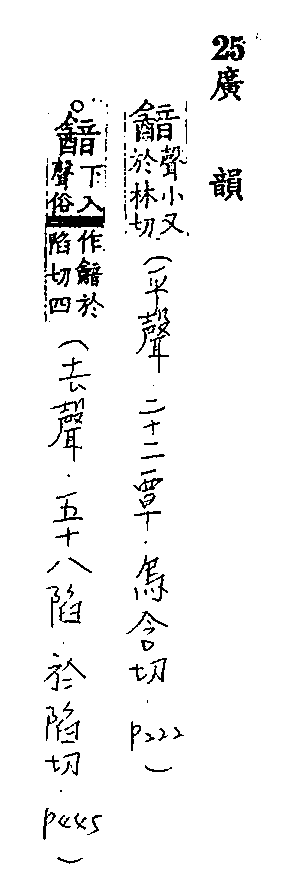 25廣韻
韽聲小又於林切(平聲.二十二覃.烏含切.p222)
○韽下入聲俗作韽於陷切四(去聲.五十八陷.於陷切.p445)